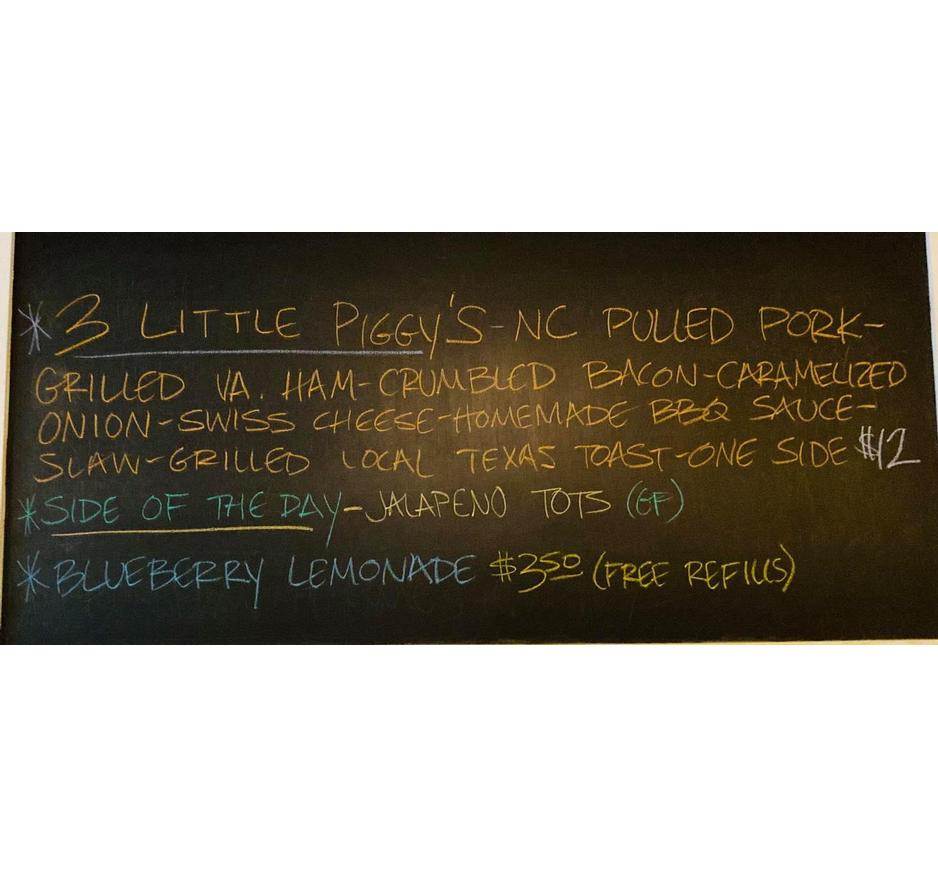 * 3 LITTLE PIGGY'S-NC PULLED PORK-
GRILLED VA. HAM-CRUMBLED BACON-CARAMELIZED
ONION-SWISS CHEESE-HOMEMADE BBQ SAUCE-
SLAW-GRILLED LOCAL TEXAS TOAST-ONE SIDE $12
* SIDE OF THE DAY-JALAPENO TOTS (GF)
* BLUEBERRY LEMONADE $350 (FREE REFILLS)